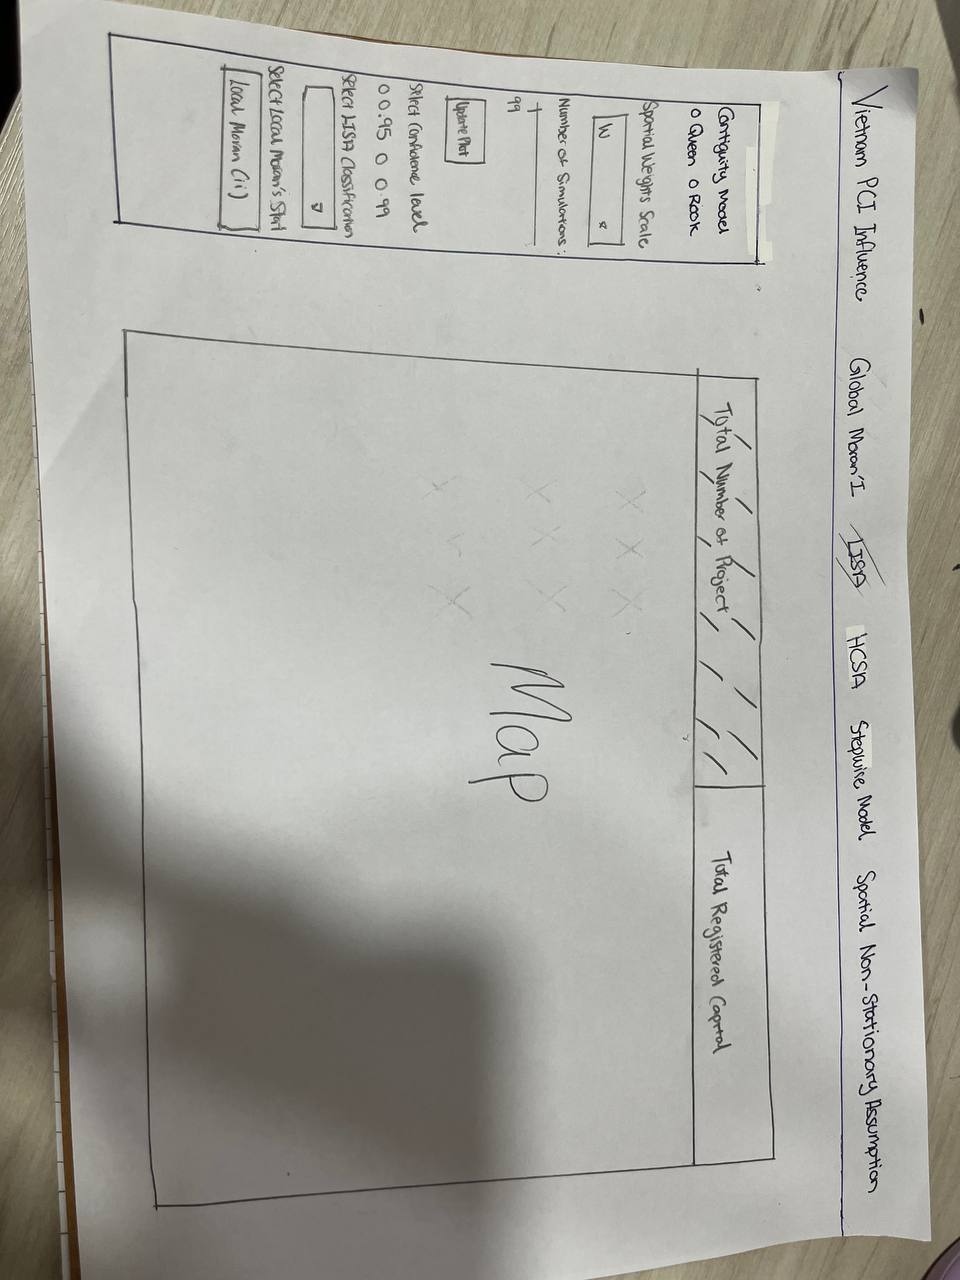 Vietnam PCI Influence Global Moran'I LISA HCSA Stepwise Model Spatial Non-Stationary Assumption
Contiguity Model
O Queen O Rook
Spatial Weights Scale
W
Number of Simulations:
99
Update Plot
Select Confidence level
O 0.95 O 0.99
Select LISA Classification
Select Local Moran's Stat
Local Moran (ii)
Total Number of Project
Total Registered Capital
Map